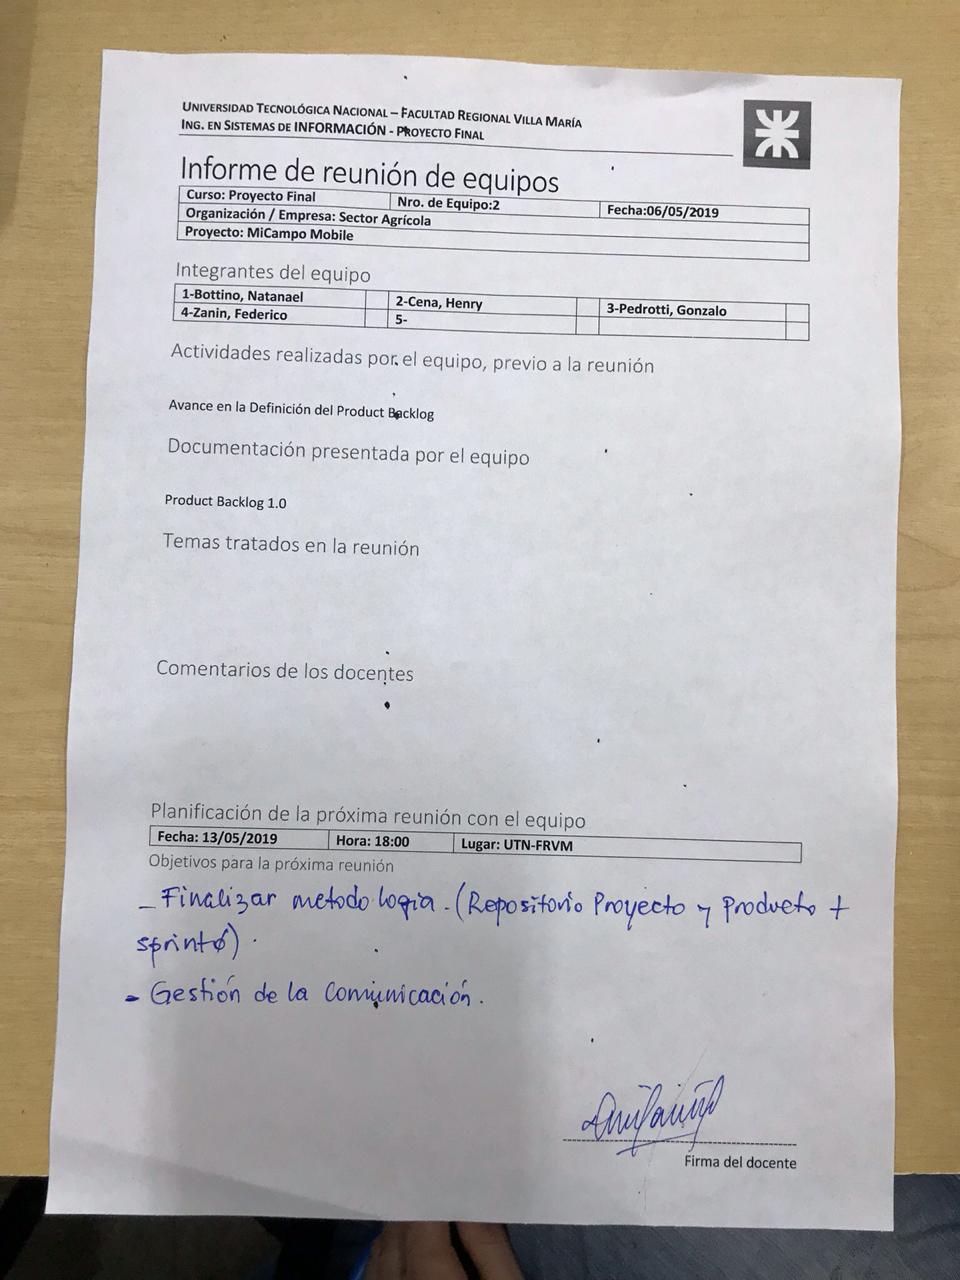 UNIVERSIDAD TECNOLÓGICA NACIONAL – FACULTAD REGIONAL VILLA MARÍA
ING. EN SISTEMAS DE INFORMACIÓN - PROYECTO FINAL
Informe de reunión de equipos
Curso: Proyecto Final Nro. de Equipo:2 Fecha:06/05/2019
Organización / Empresa: Sector Agrícola
Proyecto: MiCampo Mobile
Integrantes del equipo
1-Bottino, Natanael 2-Cena, Henry 3-Pedrotti, Gonzalo
4-Zanin, Federico 5-
Actividades realizadas por el equipo, previo a la reunión
Avance en la Definición del Product Backlog
Documentación presentada por el equipo
Product Backlog 1.0
Temas tratados en la reunión
Comentarios de los docentes
Planificación de la próxima reunión con el equipo
Fecha: 13/05/2019 Hora: 18:00 Lugar: UTN-FRVM
Objetivos para la próxima reunión
- Finalizar metodologia. (Repositorio Proyecto y Producto +
)
- Gestión de la Comunicación.
Firma del docente